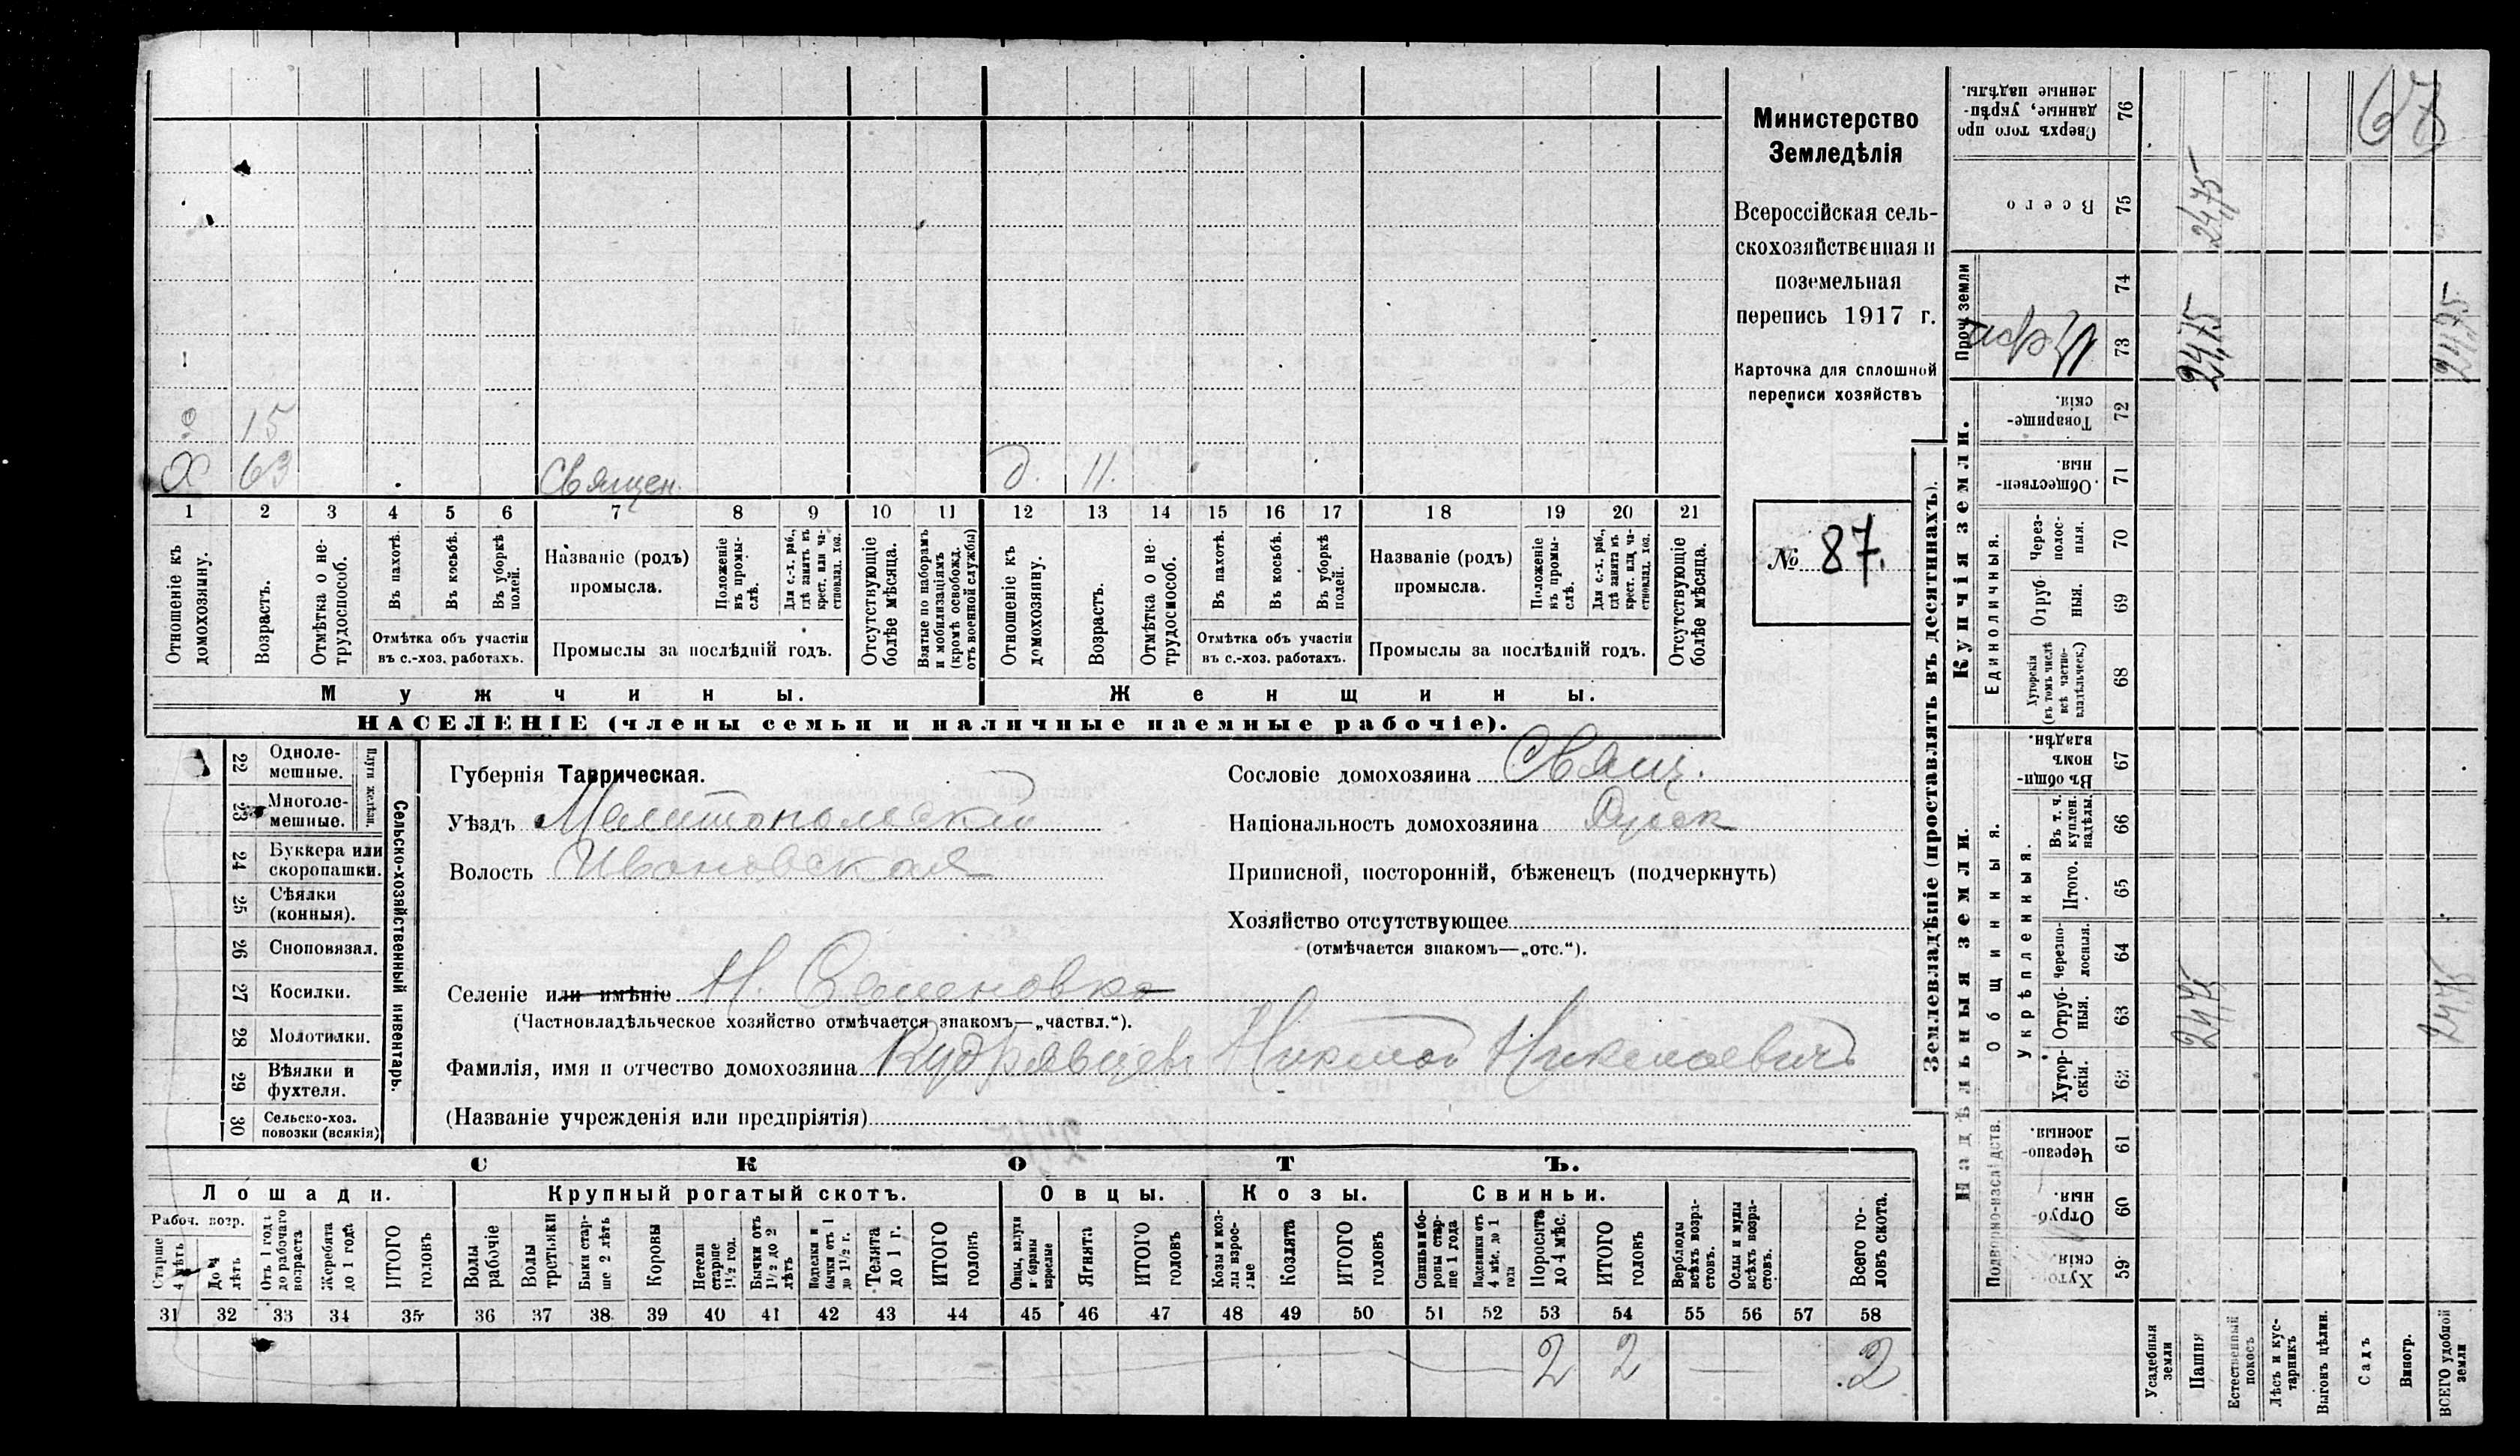 Министерство
Земледѣлія
Всероссійская сель-
скохозяйственная и
поземельная
перепись 1917 г.
Карточка для сплошной
переписи хозяйствъ
№ 87.
15
Х 63 Священ. д. 11.
1 2 3 4 5 6 7 8 9 10 11 12 13 14 15 16 17 18 19 20 21
Отношеніе къ домохозяину.
Возрастъ.
Отмѣтка о не-трудоспособ.
Въ пахотѣ.
Въ косьбѣ.
Въ уборкѣ полей.
Отмѣтка объ участіи
въ с.-хоз. работахъ.
Названіе (родъ)
промысла.
Положеніе въ промы-слѣ.
Для с.-х. раб., гдѣ занятъ въ крест. или ча-стновлад. хоз.
Промыслы за послѣдній годъ.
Отсутствующіе болѣе мѣсяца.
Взятые по наборамъ и мобилизаціямъ (кромѣ освобожд. отъ военной службы)
Отношеніе къ домохозяину.
Возрастъ.
Отмѣтка о не-трудоспособ.
Въ пахотѣ.
Въ косьбѣ.
Въ уборкѣ полей.
Отмѣтка объ участіи
въ с.-хоз. работахъ.
Названіе (родъ)
промысла.
Положеніе въ промы-слѣ.
Для с.-х. раб., гдѣ занята въ крест. или ча-стновлад. хоз.
Промыслы за послѣдній годъ.
Отсутствующіе болѣе мѣсяца.
Мужчины. Женщины.
НАСЕЛЕНІЕ (члены семьи и наличные наемные рабочіе).
Сельско-хозяйственный инвентарь.
Плуги желѣзн.
22 Одноле-мешные.
23 Многоле-мешные.
24 Буккера или скоропашки.
25 Сѣялки (конныя).
26 Сноповязал.
27 Косилки.
28 Молотилки.
29 Вѣялки и фухтеля.
30 Сельско-хоз. повозки (всякія)
Губернія Таврическая.
Уѣздъ Мелитопольскій
Волость Ивановская
Селеніе или имѣніе Н. Семеновка
(Частновладѣльческое хозяйство отмѣчается знакомъ—„частвл.“).
Фамилія, имя и отчество домохозяина Кудрявцевъ Николай Николаевичъ
(Названіе учрежденія или предпріятія)
Сословіе домохозяина Свящ.
Національность домохозяина Русск
Приписной, посторонній, бѣженецъ (подчеркнуть)
Хозяйство отсутствующее
(отмѣчается знакомъ—„отс.“).
СКОТЪ.
Лошади. Крупный рогатый скотъ. Овцы. Козы. Свиньи.
Рабоч. возр.
Старше 4 лѣтъ
До 4 лѣтъ
Отъ 1 года до рабочаго возраста
Жеребята до 1 года
ИТОГО головъ
Волы рабочіе
Волы третьяки
Быки стар-ше 2 лѣтъ
Коровы
Нетели старше 1½ год.
Бычки отъ 1½ до 2 лѣтъ
Подтелки и бычки отъ 1 до 1½ г.
Телята до 1 г.
ИТОГО головъ
Овцы, валухи и бараны взрослые
Ягнята
ИТОГО головъ
Козы и коз-лы взрос-лые
Козлята
ИТОГО головъ
Свиньи и бо-ровы стар-ше 1 года
Подсвинки отъ 4 мѣс. до 1 года
Поросята до 4 мѣс.
ИТОГО головъ
Верблюды всѣхъ возра-стовъ.
Ослы и мулы всѣхъ возра-стовъ.
Всего го-ловъ скота.
31 32 33 34 35 36 37 38 39 40 41 42 43 44 45 46 47 48 49 50 51 52 53 54 55 56 57 58
2 2 2
Землевладѣніе (проставлять въ десятинахъ).
Сверхъ того про данные, укрѣп-ленные надѣлы. 76
Всего 75 24,75
Проч. земли
74
73 24,75 24,75
Купчія земли.
Товарище-скія. 72
Обществен-ныя. 71
Единоличныя.
Через-полос-ныя. 70
Отруб-ныя. 69
Хуторскія (въ томъ числѣ всѣ частно-владѣльческ.) 68
Надѣльныя земли.
Общинныя.
Въ общи-номъ владѣн. 67
Укрѣпленныя.
Въ т. ч. куплен. надѣлы. 66
Итого. 65
Черезпо-лосныя. 64
Отруб-ныя. 63 24,75 24,75
Хутор-скія. 62
Подворно-наслѣдств.
Черезпо-лосныя. 61
Отруб-ныя. 60
Хутор-скія. 59
Усадебныя земли
Пашня
Естественный покосъ
Лѣсъ и кус-тарникъ
Выгонъ цѣлин.
Садъ
Виногр.
ВСЕГО удобной земли
67